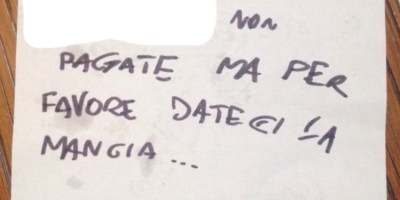 NON
PAGATE MA PER
FAVORE DATECI LA
MANCIA ...